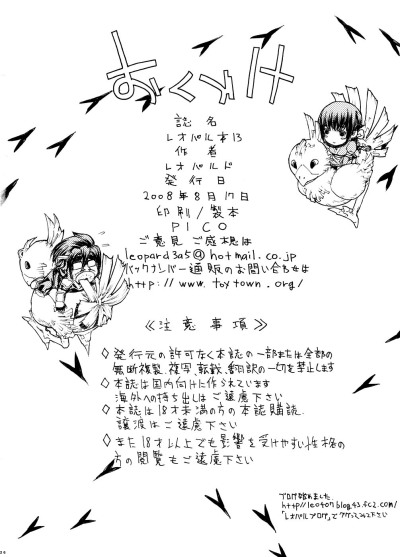 おくづけ
誌名
レオパル本13
作者
レオパルド
発行日
2008年8月17日
印刷/製本
PICO
ご意見ご感想は
leopard3a5@hotmail.co.jp
バックナンバー通販のお問い合わせは
http://www.toytown.org/
≪注意事項≫
◇発行元の許可なく本誌の一部または全部の
無断複製、複写、転載、翻訳の一切を禁止します
◇本誌は国内向けに作られています
海外への持ち出しはご遠慮下さい
◇本誌は18才未満の方の本誌購読、
譲渡はご遠慮下さい
◇また18才以上でも影響を受けやすい性格の
方の閲覧もご遠慮下さい
ブログ始めました。
http://leo407.blog43.fc2.com/
「レオパルブログ」でググってみて下さい
26